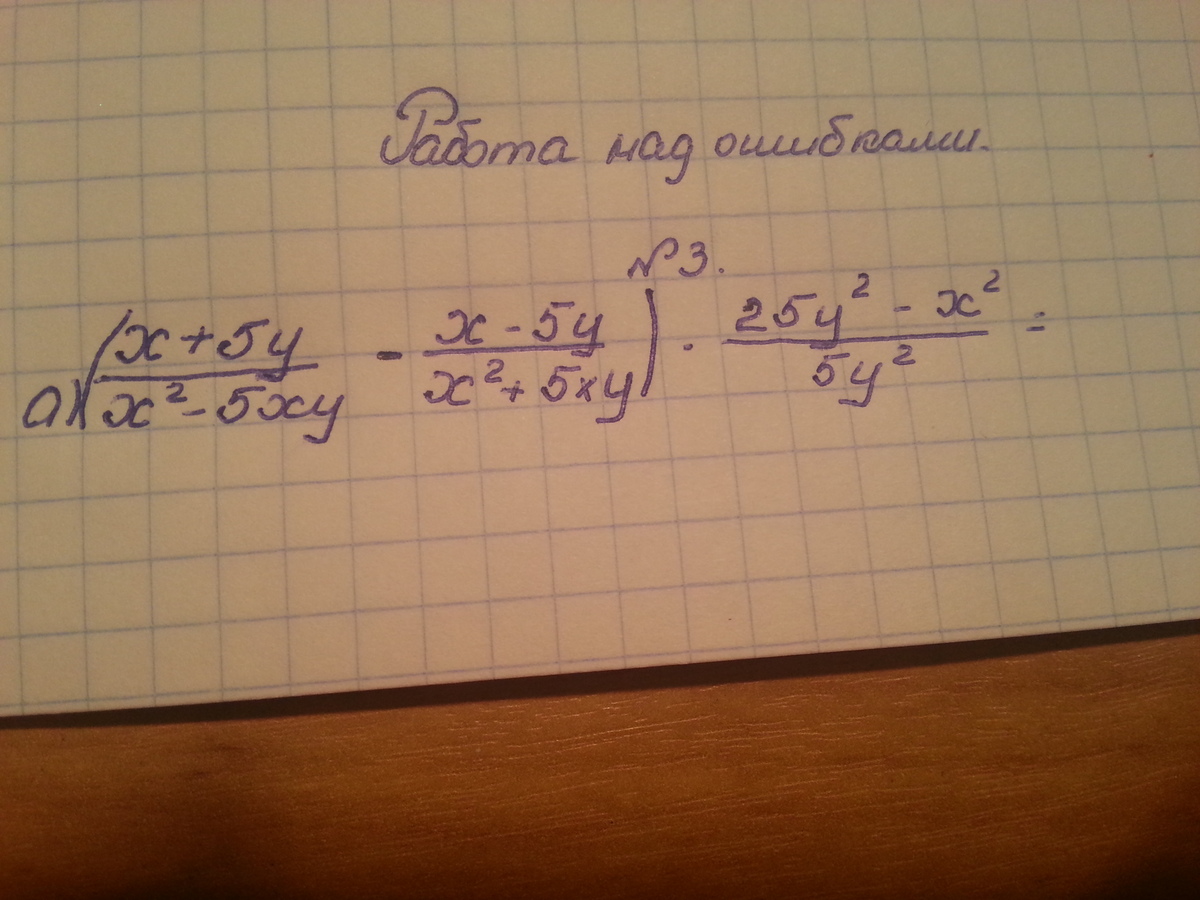 Работа над ошибками.
№3.
а) (x+5y / x²-5xy - x-5y / x²+5xy) · 25y²-x² / 5y² =